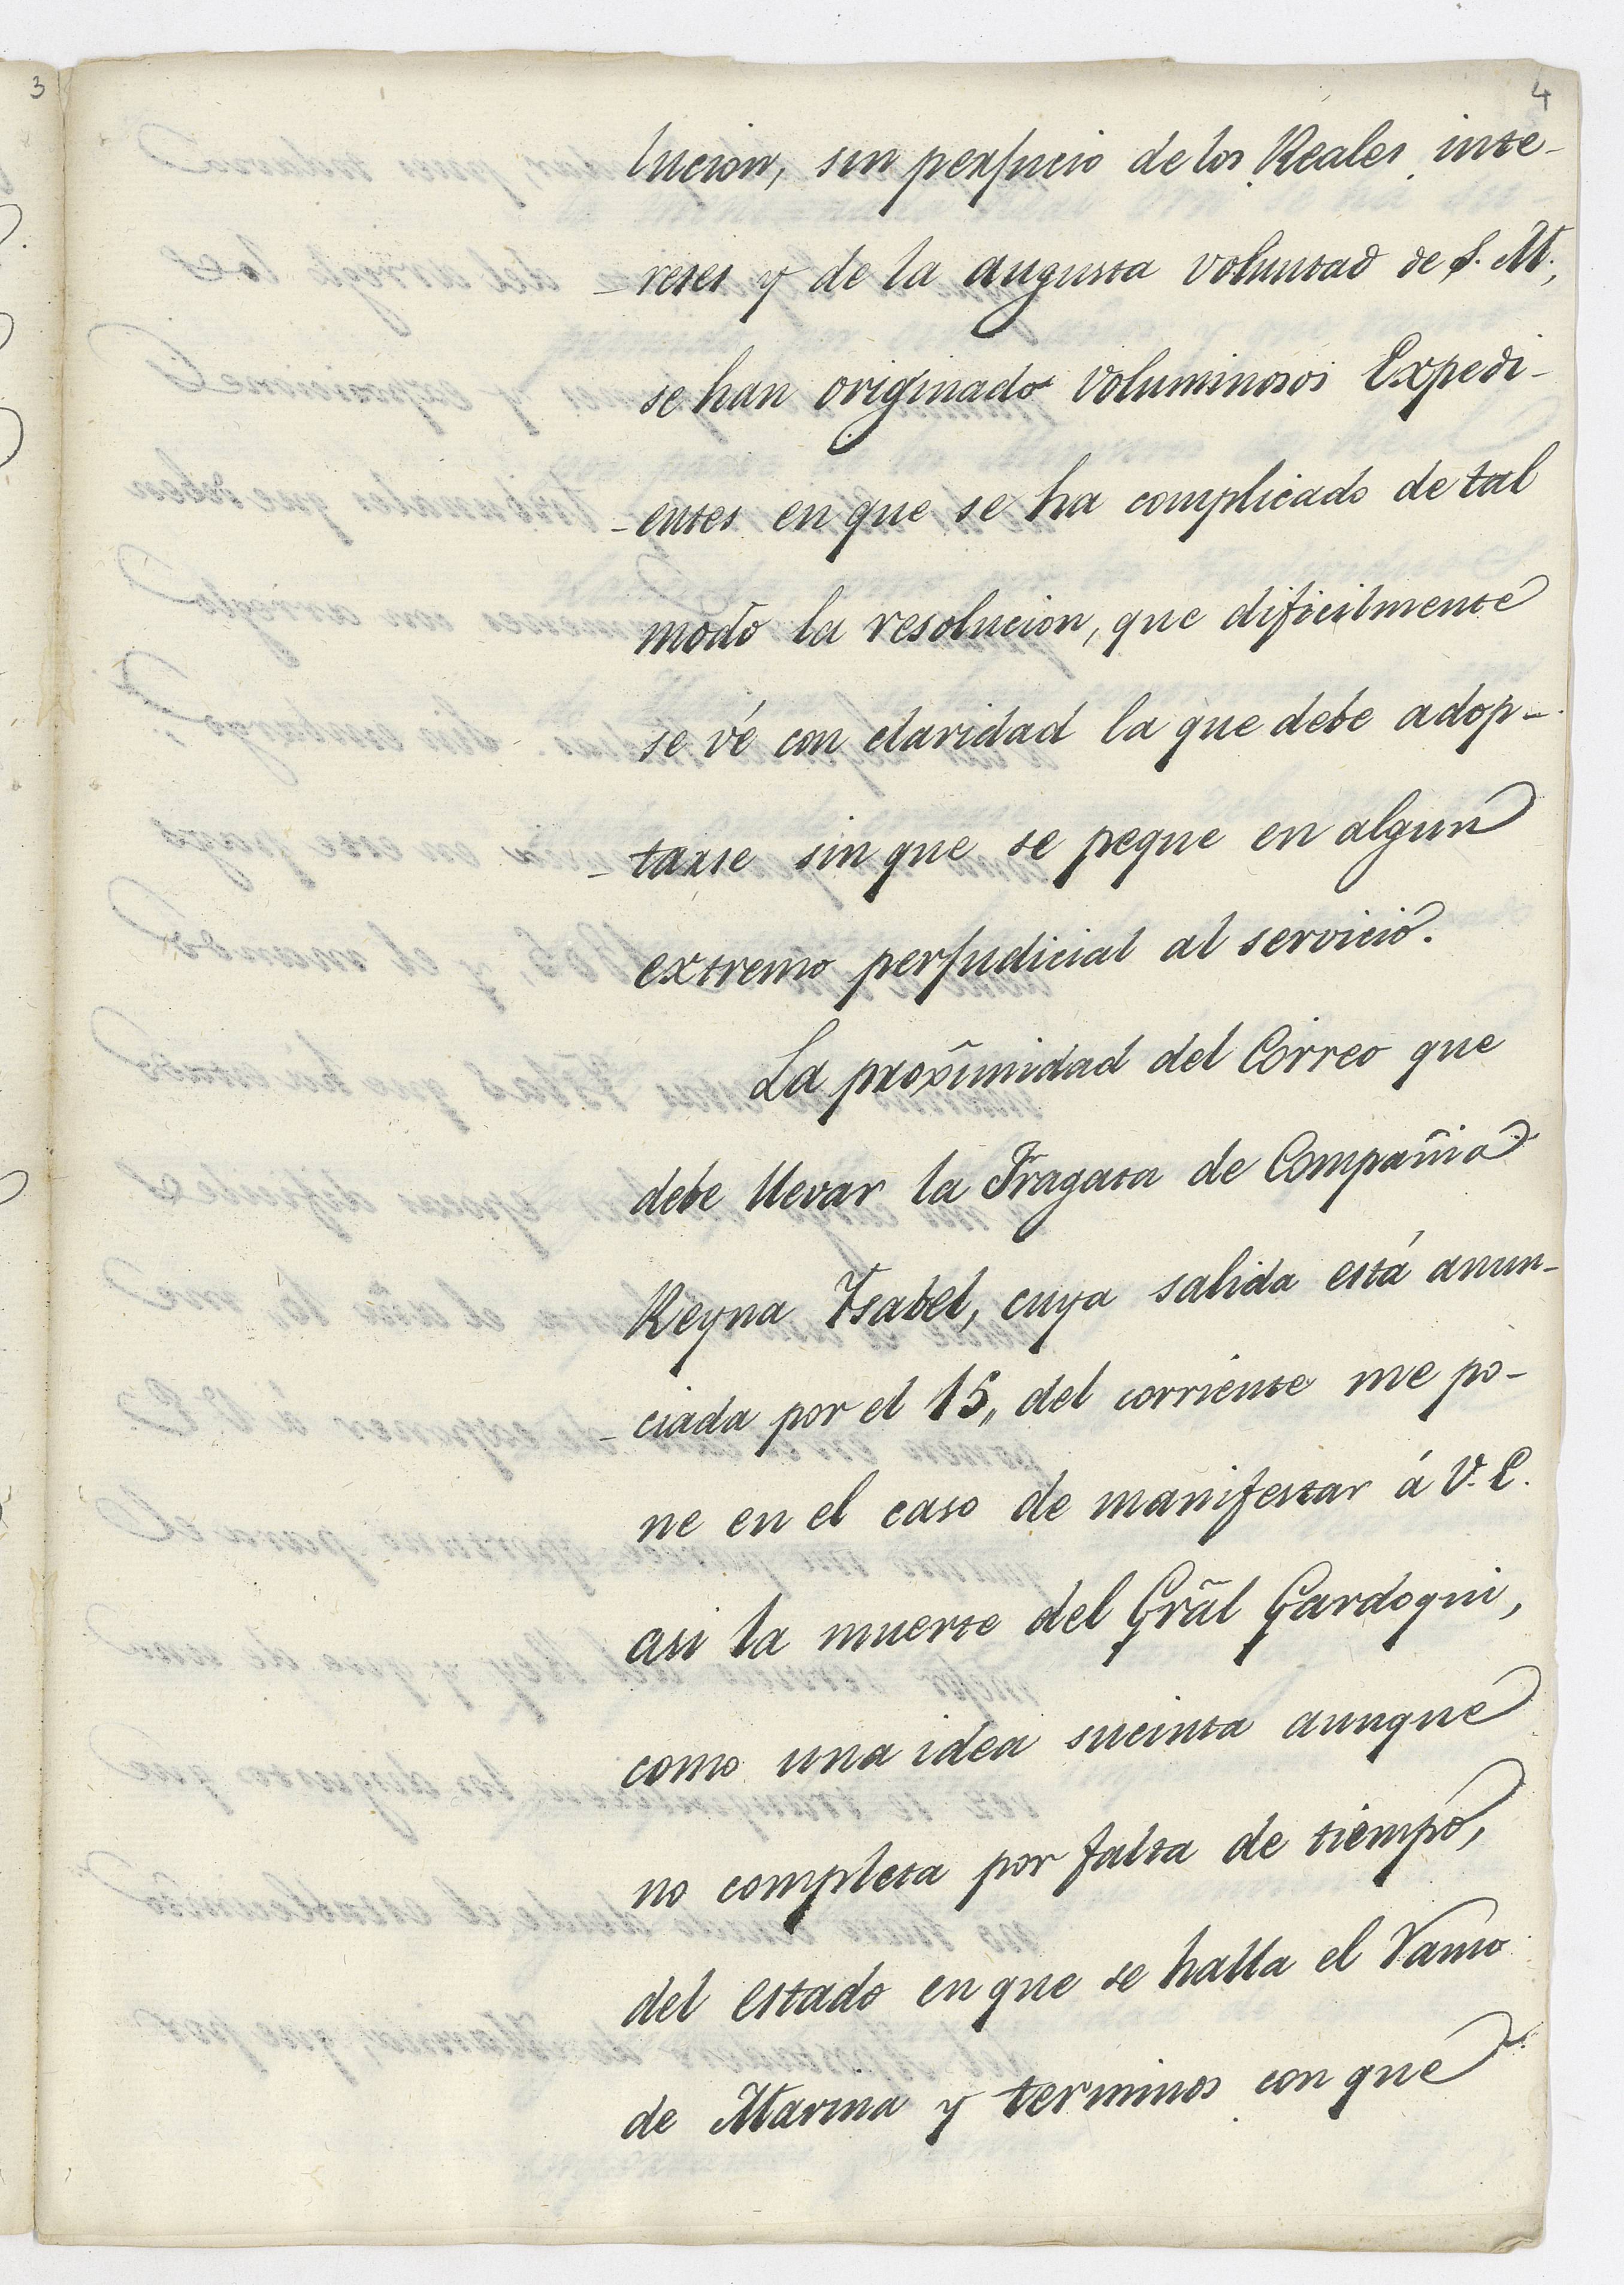 3
4
lucion, sin perjucio de los Reales inte-
-reses y de la augusta voluntad de S. M.,
se han originado voluminosos Expedi-
-entes en que se ha complicado de tal
modo la resolucion, que dificilmente
se vé con claridad la que debe adop-
-tarse sin que se peque en algun
extremo perjudicial al servicio.
La proximidad del Correo que
debe llevar la Fragata de Compañia
Reyna Ysabel, cuya salida está anun-
-ciada por el 15,, del corriente me po-
ne en el caso de manifestar á V. E.
asi la muerte del Grãl Gardoqui,
como una idea sucinta aunque
no completa por falta de tiempo,
del estado en que se halla el Ramo
de Marina y terminos con que